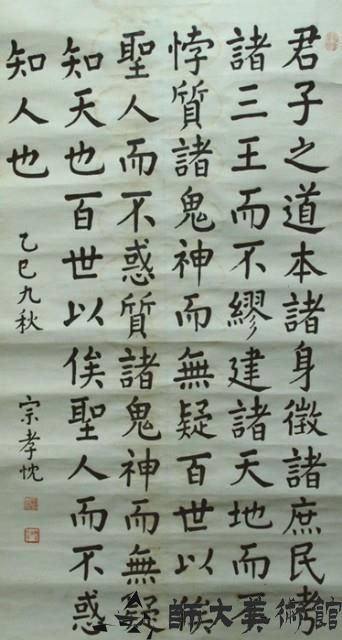 君子之道本諸身徵諸庶民考
諸三王而不繆建諸天地而不
悖質諸鬼神而無疑百世以俟
聖人而不惑質諸鬼神而無疑
知天也百世以俟聖人而不惑
知人也
乙巳九秋 宗孝忱
師大美術館